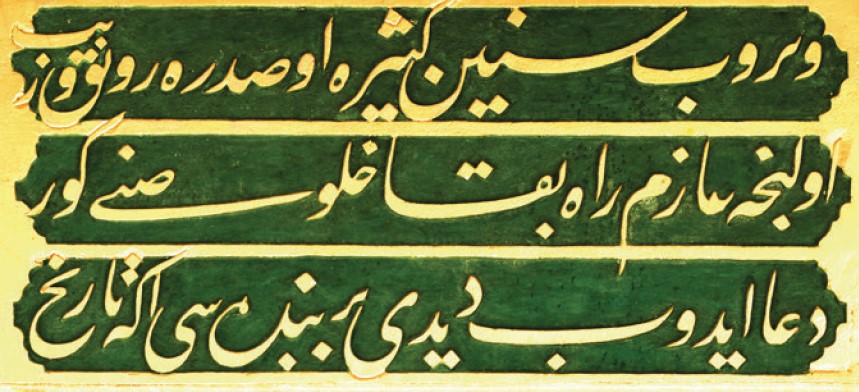 ويروب سنين كثيره او صدره رونق وزيب
اولنجه عازم راه بقا خلوصنے كور
دعا ايدوب ديدى بر بنده سى اكا تاريخ